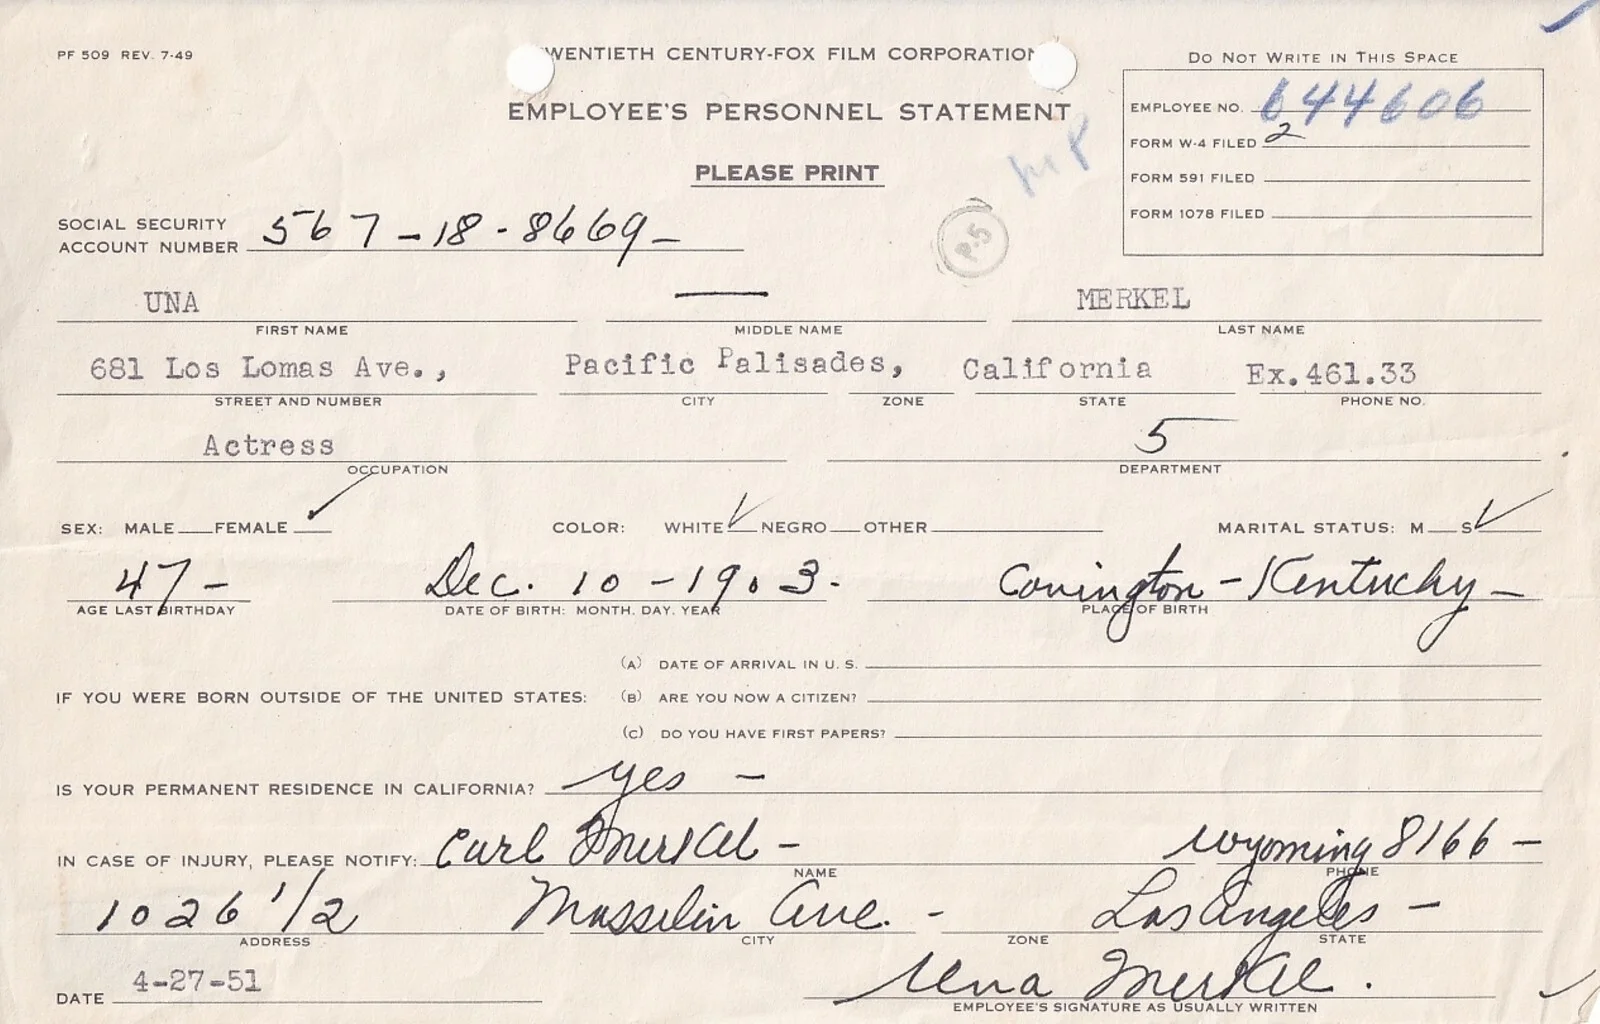 PF 509 REV. 7-49
WENTIETH CENTURY-FOX FILM CORPORATION
EMPLOYEE'S PERSONNEL STATEMENT
PLEASE PRINT
DO NOT WRITE IN THIS SPACE
EMPLOYEE NO. 644606
FORM W-4 FILED 2
FORM 591 FILED
FORM 1078 FILED
P-5
SOCIAL SECURITY
ACCOUNT NUMBER 567-18-8669-
UNA — MERKEL
FIRST NAME MIDDLE NAME LAST NAME
681 Los Lomas Ave., Pacific Palisades, California Ex.461.33
STREET AND NUMBER CITY ZONE STATE PHONE NO.
Actress 5
OCCUPATION DEPARTMENT
SEX: MALE FEMALE ✓ COLOR: WHITE ✓ NEGRO OTHER MARITAL STATUS: M S ✓
47- Dec. 10-1903. Covington-Kentucky-
AGE LAST BIRTHDAY DATE OF BIRTH: MONTH. DAY. YEAR PLACE OF BIRTH
(A) DATE OF ARRIVAL IN U. S.
IF YOU WERE BORN OUTSIDE OF THE UNITED STATES: (B) ARE YOU NOW A CITIZEN?
(C) DO YOU HAVE FIRST PAPERS?
IS YOUR PERMANENT RESIDENCE IN CALIFORNIA? yes -
IN CASE OF INJURY, PLEASE NOTIFY: Merkel - Wyoming 8166 -
NAME PHONE
1026 1/2 Masselin Ave. - Los Angeles -
ADDRESS CITY ZONE STATE
DATE 4-27-51 Una Merkel.
EMPLOYEE'S SIGNATURE AS USUALLY WRITTEN